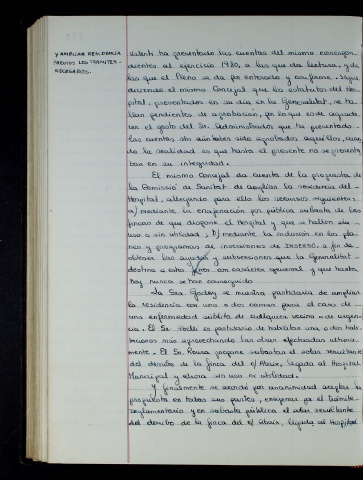 Y AMPLIAR RESIDENCIA
PREVIOS LOS TRAMITES
NECESARIOS.
Valenti ha presentado las cuentas del mismo correspon-
dientes al ejercicio 1980, a las que da lectura, y de
las que el Pleno se da por enterado y conforme. Sigue
diciendo el mismo Concejal que los estatutos del Hos-
pital, presentados en su día en la Generalitat, se ha-
llan pendientes de aprobación, por lo que es de agrade-
cer el gesto del Sr. Administrador que ha presentado
las cuentas sin aún haber sido aprobados aquellos, cuan-
do la realidad es que hasta el presente no se presenta-
ban en su integridad.
El mismo Concejal da cuenta de la propuesta de
la Comissió de Sanitat de ampliar la residencia del
Hospital, allegando para ello los recursos siguientes:
a) mediante la enajenación por pública subasta de las
fincas de que dispone el Hospital y que se hallen sin
uso o sin utilidad; b) mediante la inclusión en los pla-
nes y programas de inversiones de INSERSO, a fin de
obtener las ayudas y subvenciones que la Generalitat
destina a estos fines con carácter general y que hasta
hoy nunca se han conseguido.
La Sra. Godoy se muestra partidaria de ampliar
la residencia con una o dos camas para el caso de
una enfermedad súbita de cualquier vecino o de urgen-
cia. El Sr. es partidario de habilitar una o dos habi-
taciones más aprovechando las obras efectuadas última-
mente. El Sr. Rousa propone subastar el solar resultante
del derribo de la finca del c/ Abaix, legada al Hospital
Municipal y ahora sin uso ni utilidad.
Y finalmente se acordó por unanimidad aceptar la
propuesta en todas sus partes, enajenar por el trámite
reglamentario y en subasta pública el solar resultante
del derribo de la finca del c/ Abaix, legada al Hospital